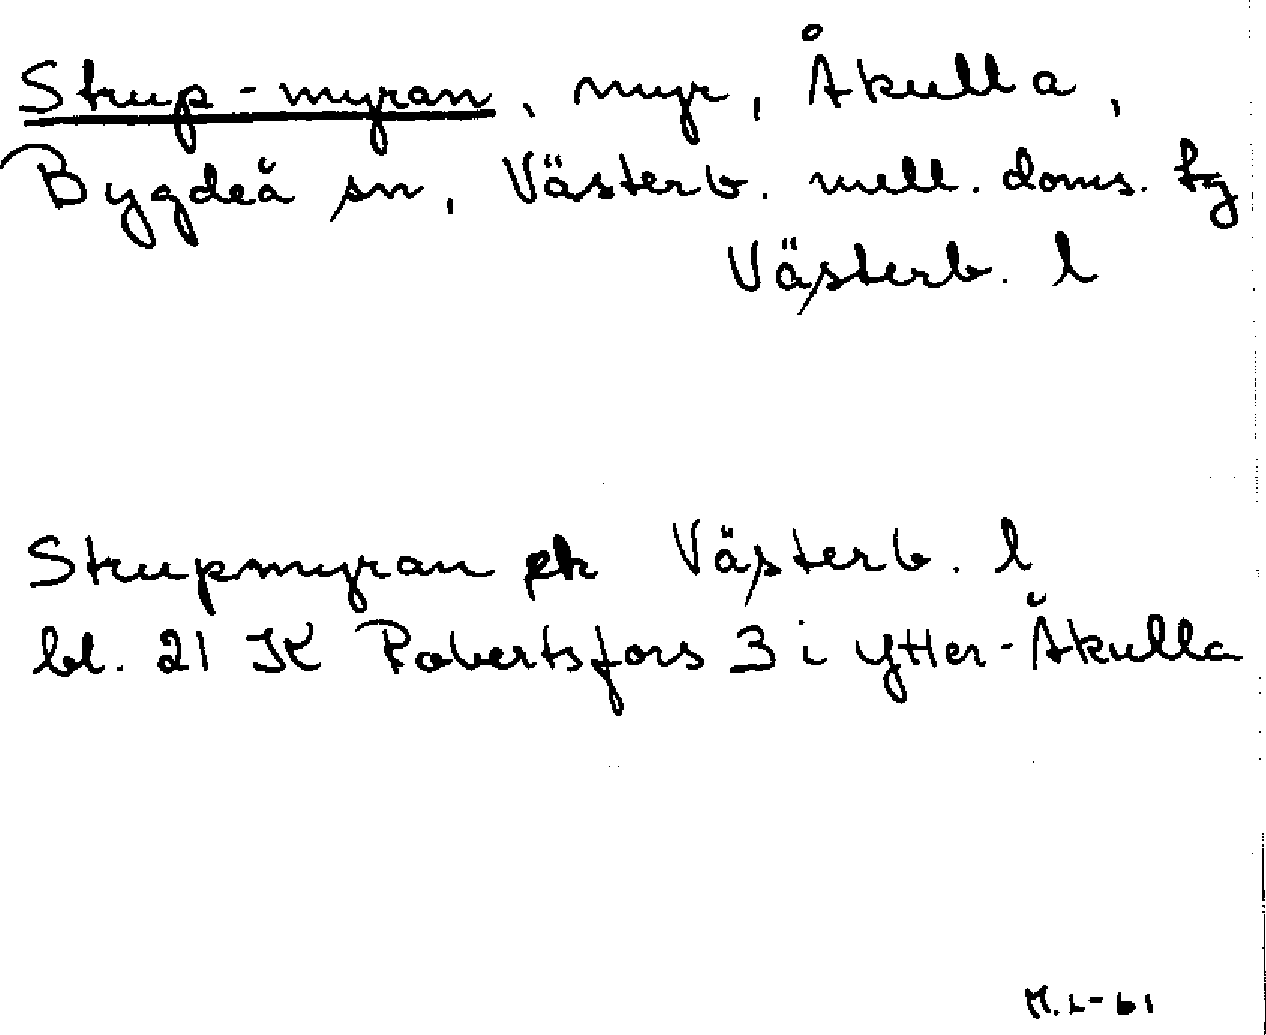 Strup-myran, myr, Åkulla,
Bygdeå sn, Västerb. mell. doms. tg
Västerb. l
Strupmyran ek Västerb. l
bl. 21 JK Robertsfors 3 i Ytter-Åkulla
M.L-61